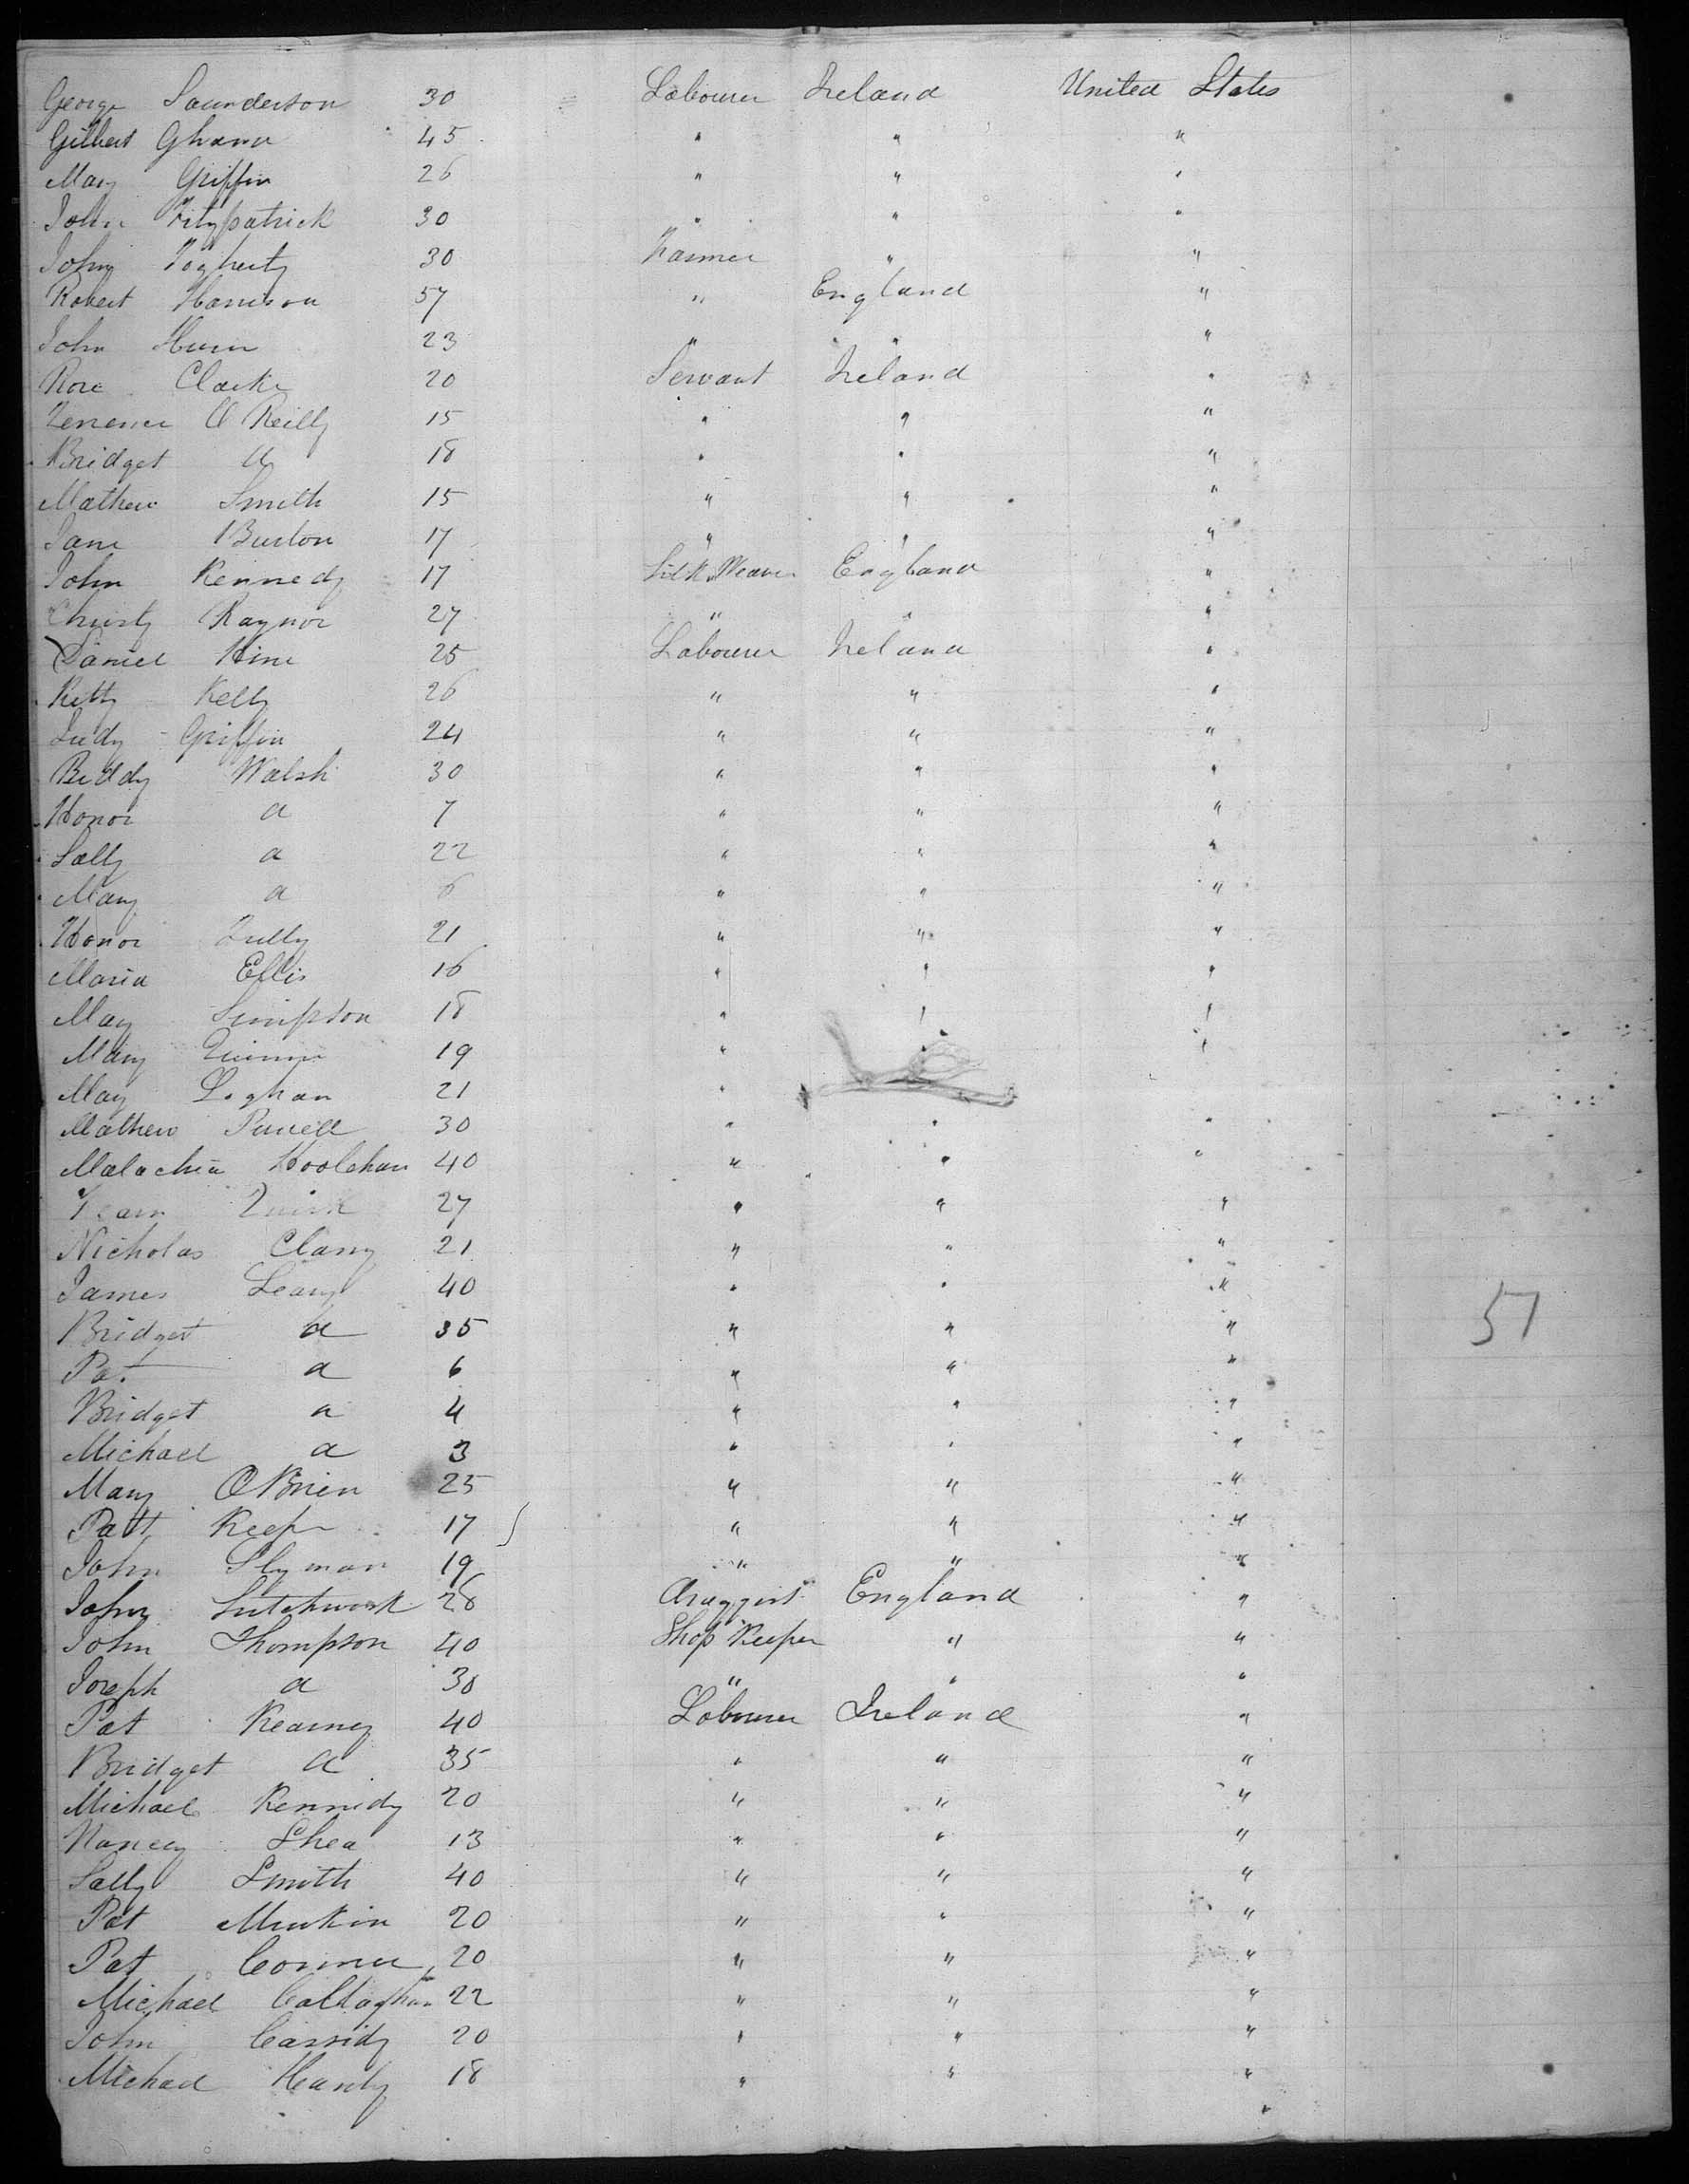 George Saunderson 30 Labourer Ireland United States
Gilbert 45 " " "
Mary Griffin 26 " " "
John Fitzpatrick 30 " " "
John Fogherty 30 Farmer " "
Robert Harrison 57 " England "
John 23 " " "
Rose Clarke 20 Servant Ireland "
Terrence O Reilly 15 " " "
Bridget a 18 " " "
Mathew Smith 15 " " "
Jane Burton 17 " " "
John Kennedy 17 Silk Weaver England "
Christy Raynor 27 " " "
Daniel Hine 25 Labourer Ireland "
Kitty Kelly 26 " " "
Judy Griffin 24 " " "
Biddy Walsh 30 " " "
Honor a 7 " " "
Sally a 22 " " "
Mary a 6 " " "
Honor 21 " " "
Maria Ellis 16 " " "
May Simpson 18 " " "
Mary 19 " " "
May Loghan 21 "
Mathew 30 " " "
Malachia Hoolehan 40 " " "
Quirk 27 " " "
Nicholas Clany 21 " " "
James Leary 40 " " "
Bridget a 35 " " "
Pat a 6 " " "
Bridget a 4 " " "
Michael a 3 " " "
Mary O Brien 25 " " "
Patt Keefe 17 " " "
John Slyman 19 " " "
John 28 Druggist England "
John Thompson 40 Shop Keeper " "
Joseph a 38 " " "
Pat Kearney 40 Labourer Ireland "
Bridget a 35 " " "
Michael Kennidy 20 " " "
Nancy Shea 13 " " "
Sally Smith 40 " " "
Pat 20 " " "
Pat 20 " " "
Michael Callaghan 22 " " "
John Cassidy 20 " " "
Michael 18 " " "
51